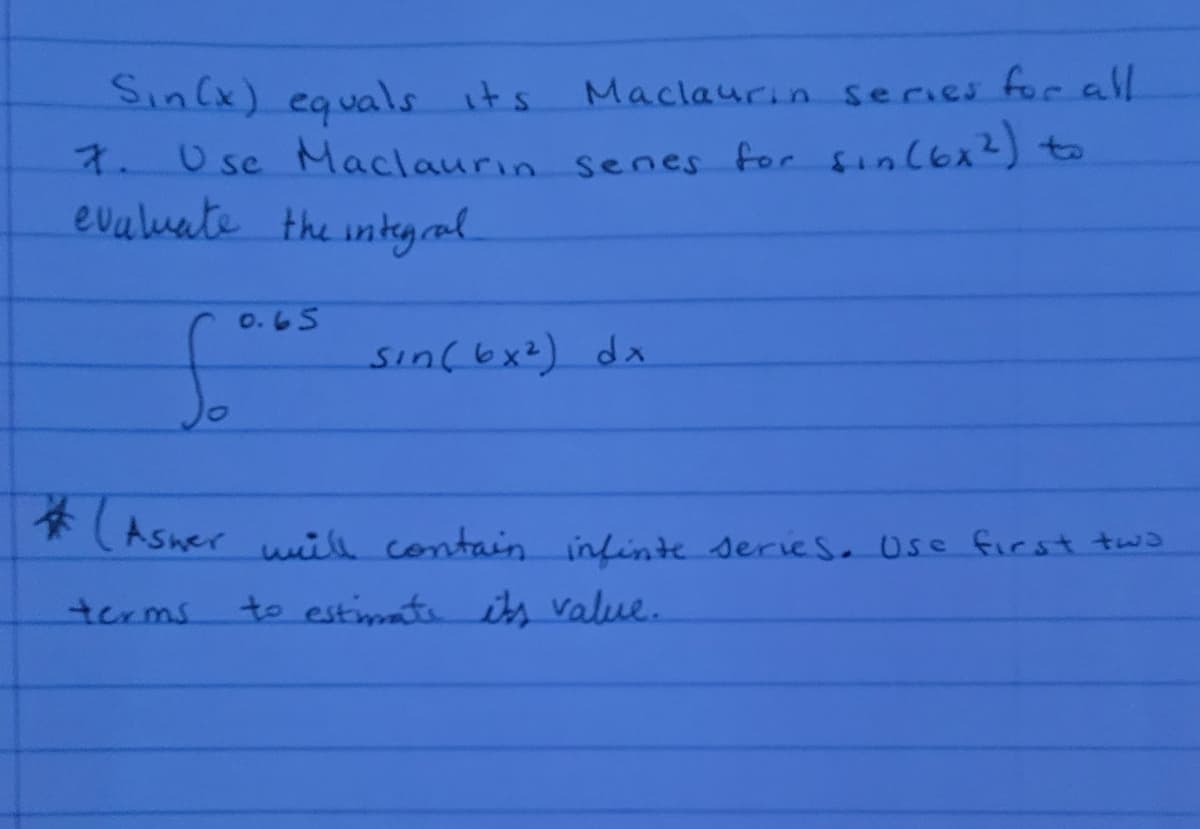 Sin(x) equals its Maclaurin series for all
x. Use Maclaurin senes for sin(6x²) to
evaluate the integral
∫₀^0.65 sin(6x²) dx
* (Aswer will contain infinte series. Use first two
terms to estimate its value.